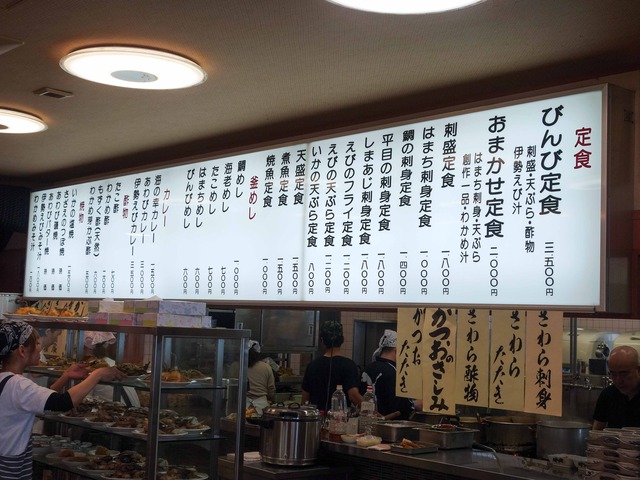 定食
びんび定食 三五〇〇円
刺盛・天ぷら・酢物
伊勢えび汁
おまかせ定食 二〇〇〇円
はまち刺身・天ぷら
創作一品・わかめ汁
刺盛定食 一八〇〇円
はまち刺身定食 一〇〇〇円
鯛の刺身定食 一四〇〇円
平目の刺身定食 一八〇〇円
しまあじ刺身定食 一八〇〇円
えびのフライ定食 一二〇〇円
えびの天ぷら定食 一二〇〇円
いかの天ぷら定食 八〇〇円
天盛定食 一五〇〇円
煮魚定食 一五〇〇円
焼魚定食 一〇〇〇円
釜めし
鯛めし 一〇〇〇円
海老めし 七〇〇円
たこめし 七〇〇円
はまちめし 六〇〇円
びんびめし 六〇〇円
カレー
海の幸カレー
あわびカレー
伊勢えびカレー
酢物
たこ酢
わかめ酢
もずく酢(天然)
わかめ芽かぶ酢
焼物
いかの塩焼
さざえのつぼ焼
あわび磯焼
あわびバター焼
伊勢えびみそ汁
わかめみそ汁
さわら刺身
さわらたたき
さわら酢物
かつおのさしみ
かつおたたき